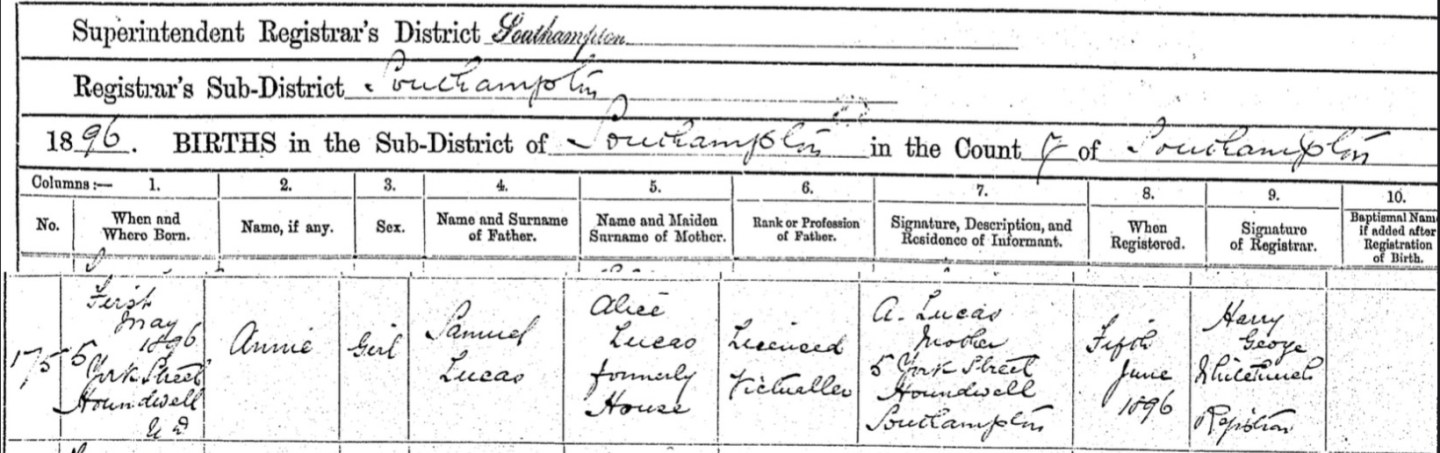 Superintendent Registrar's District Southampton
Registrar's Sub-District Southampton
1896. BIRTHS in the Sub-District of Southampton in the County of Southampton
Columns:— 1. 2. 3. 4. 5. 6. 7. 8. 9. 10.
No. When and Where Born. Name, if any. Sex. Name and Surname of Father. Name and Maiden Surname of Mother. Rank or Profession of Father. Signature, Description, and Residence of Informant. When Registered. Signature of Registrar. Baptismal Name if added after Registration of Birth.
175
First
May
1896
5
York Street
Houndwell
U D
Annie
Girl
Samuel
Lucas
Alice
Lucas
formerly
House
Licensed
Victualler
A. Lucas
Mother
5 York Street
Houndwell
Southampton
Fifth
June
1896
Harry
George
Whitchurch
Registrar